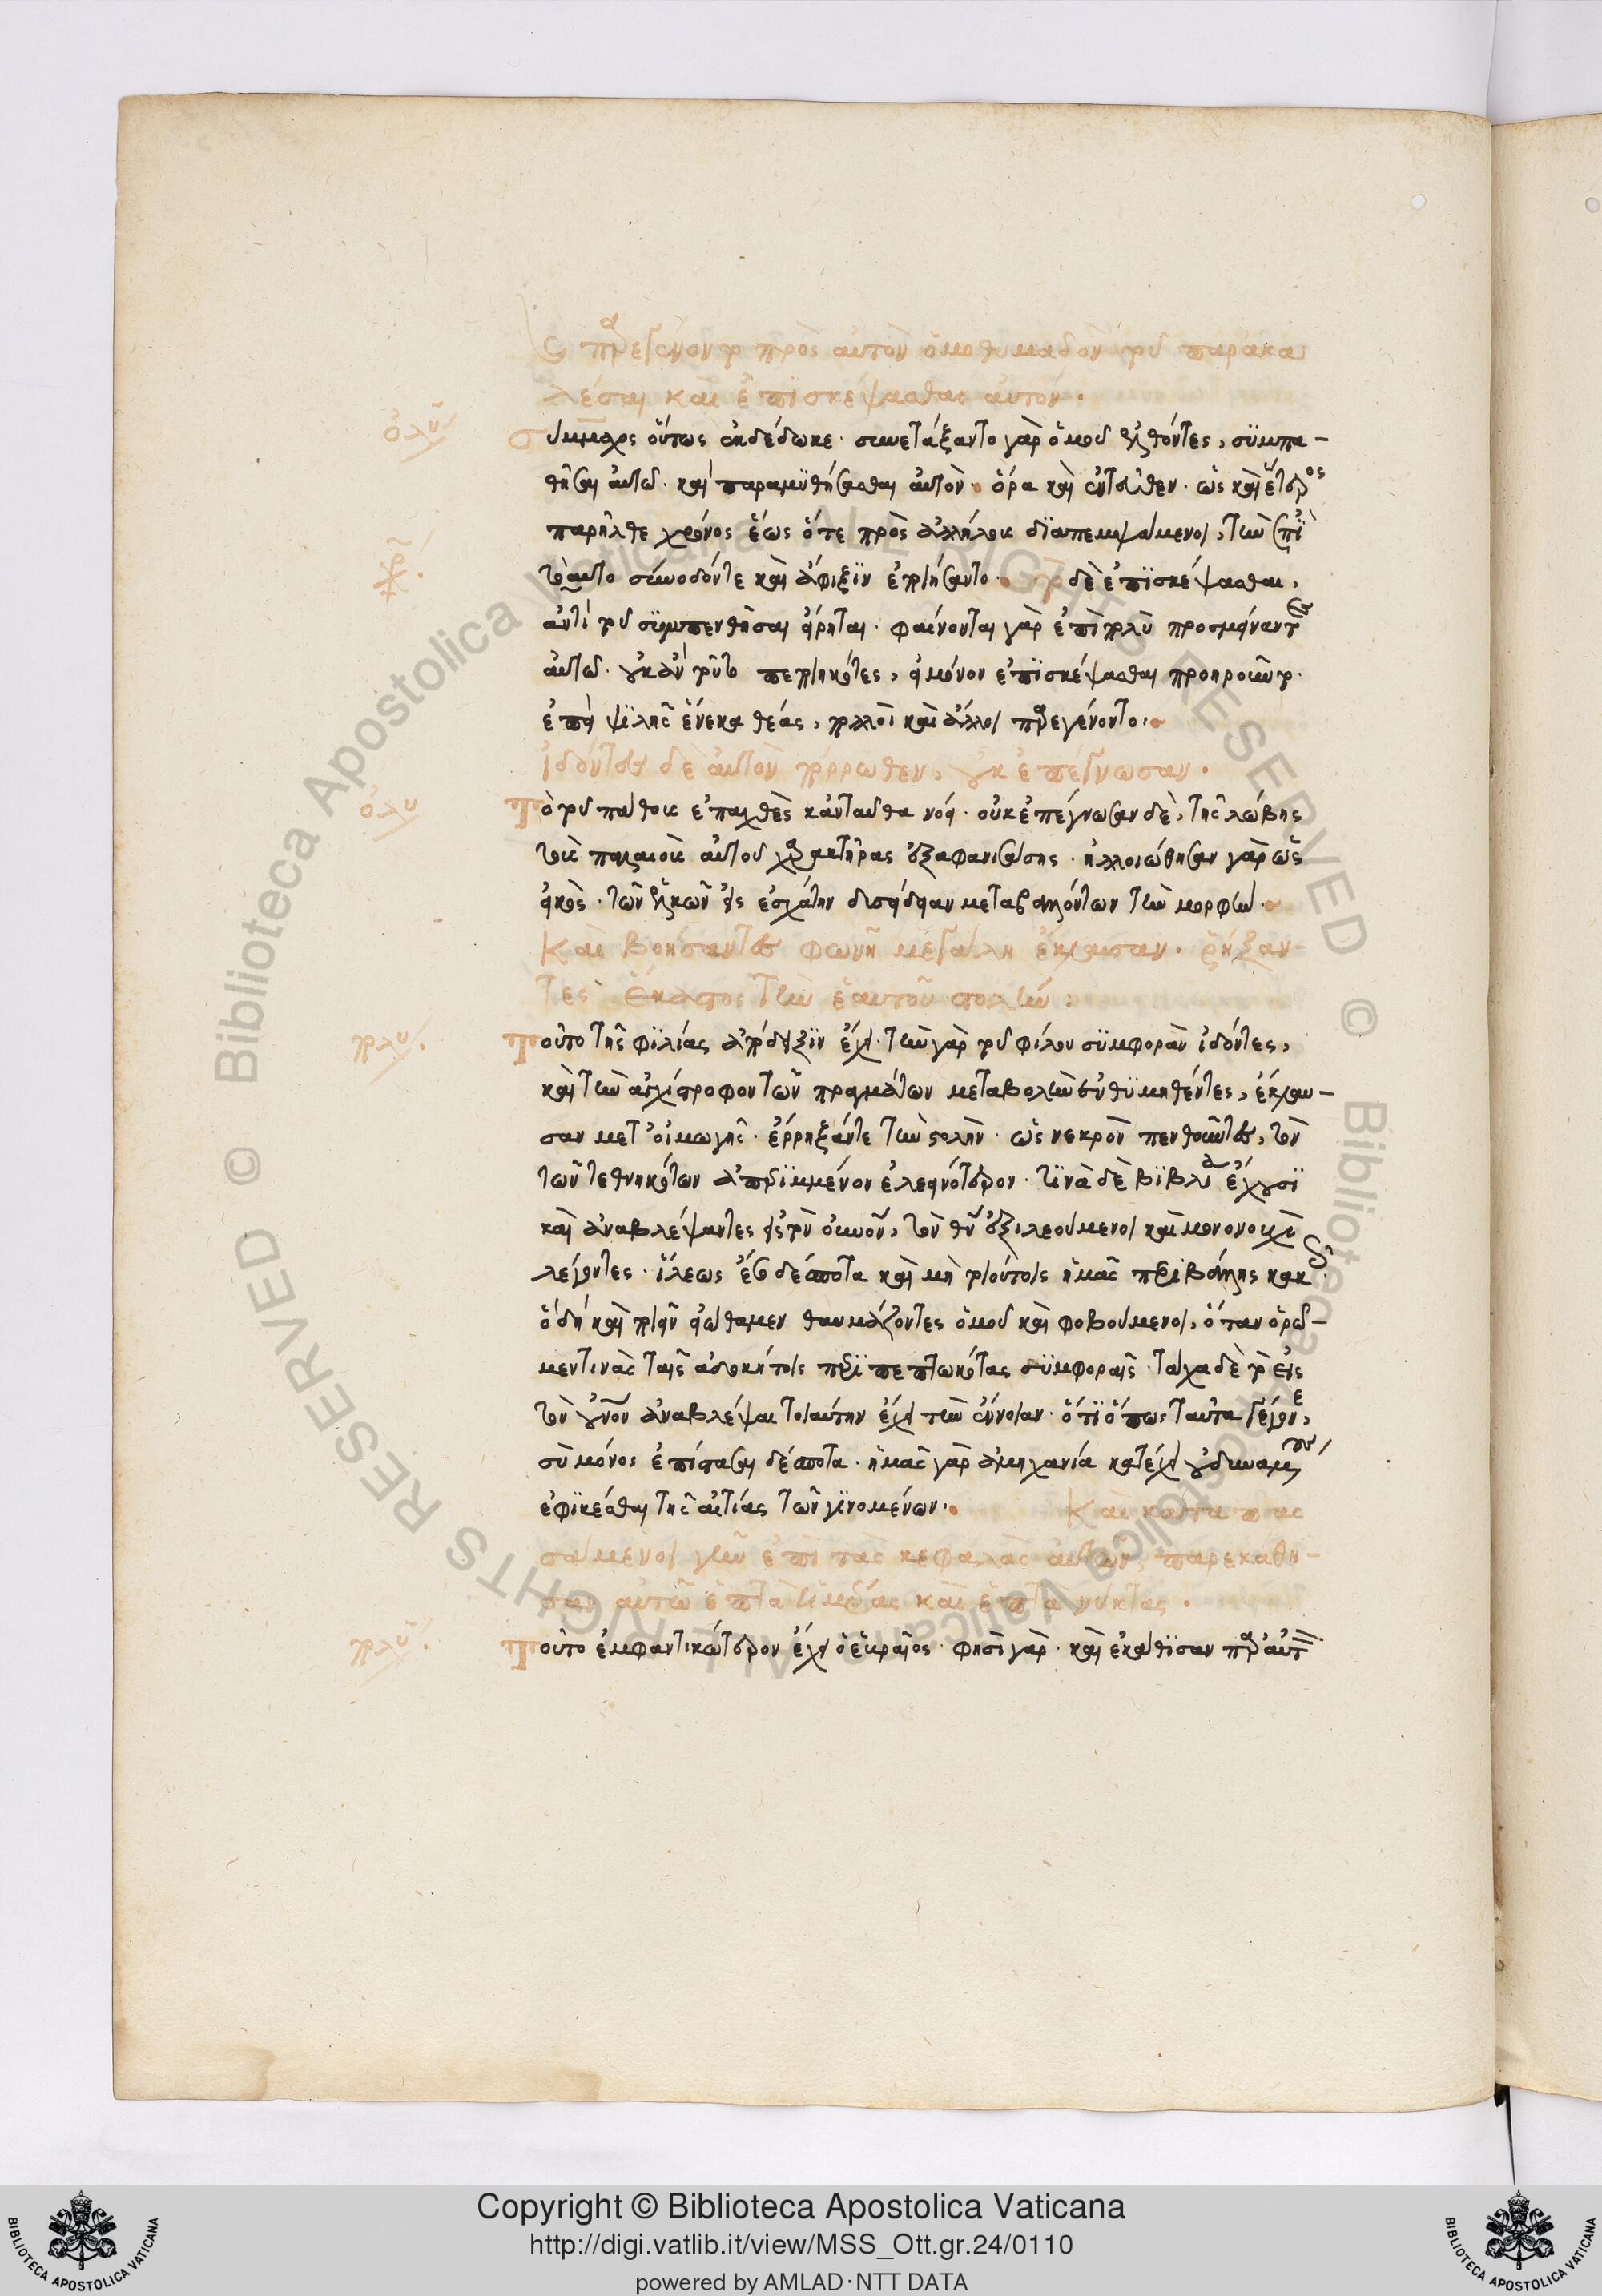 καὶ παρεγένοντο πρὸς αὐτὸν ὁμοθυμαδὸν τοῦ παρακα
λέσαι καὶ ἐπισκέψασθαι αὐτόν.
ὀλυ
Σύμμαχος οὕτως ἐκδέδωκε. συνετάξαντο γὰρ ὁμοῦ ἐλθόντες, συμπα-
θῆσαι αὐτῷ. καὶ παραμυθήσασθαι αὐτόν. ὅρα καὶ ἐντεῦθεν. ὡς καὶ ἕτερος
παρῆλθε χρόνος ἕως ὅτε πρὸς ἀλλήλους διαπεμψάμενοι, τὴν ἐπὶ
χρ
τὸ αὐτὸ σύνοδόν τε καὶ ἄφιξιν ἐποιήσαντο. τὸ δὲ ἐπισκέψασθαι,
ἀντὶ τοῦ συμπενθῆσαι εἴρηται. φαίνονται γὰρ ἐπιπολὺ προσμείναντες
αὐτῷ. οὐκ ἂν τοῦτο πεποιηκότες, εἰ μόνον ἐπισκέψασθαι προῃροῦντο.
ἐπεὶ ψιλῆς ἕνεκα θέας, πολλοὶ καὶ ἄλλοι παρεγένοντο.
ἰδόντες δὲ αὐτὸν πόρρωθεν, οὐκ ἐπέγνωσαν.
ὀλυ
Τὸ τοῦ πάθους ἐπαχθὲς κἀνταῦθα νόει. οὐκ ἐπέγνωσαν δὲ, τῆς λώβης
τοὺς παλαιοὺς αὐτοῦ χαρακτῆρας ἐξαφανισάσης. ἠλλοιώθησαν γὰρ ὡς
εἰκὸς. τῶν ἑλκῶν εἰς ἐσχάτην δυσείδειαν μεταβαλόντων τὴν μορφήν.
Καὶ βοήσαντες φωνῇ μεγάλῃ ἔκλαυσαν. ῥήξαν-
τες ἕκαστος τὴν ἑαυτοῦ στολήν:
πολυ.
Τοῦτο τῆς φιλίας ἀπόδειξιν ἔχει. τὴν γὰρ τοῦ φίλου συμφορὰν ἰδόντες,
καὶ τὴν ἀγχίστροφον τῶν πραγμάτων μεταβολὴν ἐνθυμηθέντες, ἔκλαυ-
σαν μετ οἰμωγῆς. ἐρρήξάν τε τὴν στολὴν. ὡς νεκρὸν πενθοῦντες, τὸν
τῶν τεθνηκότων ἀπερριμμένον ἐλεεινότερον. τινὰ δὲ βιβλία ἔχουσι
καὶ ἀναβλέψαντες εἰς τὸν οὐνοῦν, τὸν θν ἐξιλεούμενοι καὶ μονονουχὶ
λέγοντες. ἵλεως ἔσο δέσποτα καὶ μὴ τοιούτοις ἡμᾶς περιβάλῃς κακοῖς.
ὃ δὴ καὶ ποιεῖν εἰώθαμεν θαυμάζοντες ὁμοῦ καὶ φοβούμενοι, ὅταν ὁρῶ-
μεν τινὰς ταῖς ἀδοκήτοις περιπεπτωκότας συμφοραῖς. τάχα δὲ τὸ εἰς
τὸν οὐνὸν ἀναβλέψαι τοιαύτην ἔχει τὴν ἔννοιαν. ὅτι ὅπως ταῦτα γέγονε,
σὺ μόνος ἐπίστασαι δέσποτα. ἡμᾶς γὰρ ἀμηχανία κατέχει οὐ δυναμένους
ἐφικέσθαι τῆς αἰτίας τῶν γινομένων. Καὶ καταπας
σάμενοι γῆν ἐπὶ τὰς κεφαλὰς αὐτῶν, παρεκάθη-
σαν αὐτῷ ἑπτὰ ἡμέρας καὶ ἑπτὰ νύκτας.
πολυ.
Τοῦτο ἐμφαντικώτερον ἔχει ὁ ἑβραῖος. φησὶ γὰρ. καὶ ἐκάθισαν παρ αὐτὸν
Copyright © Biblioteca Apostolica Vaticana
http://digi.vatlib.it/view/MSS_Ott.gr.24/0110
powered by AMLAD·NTT DATA